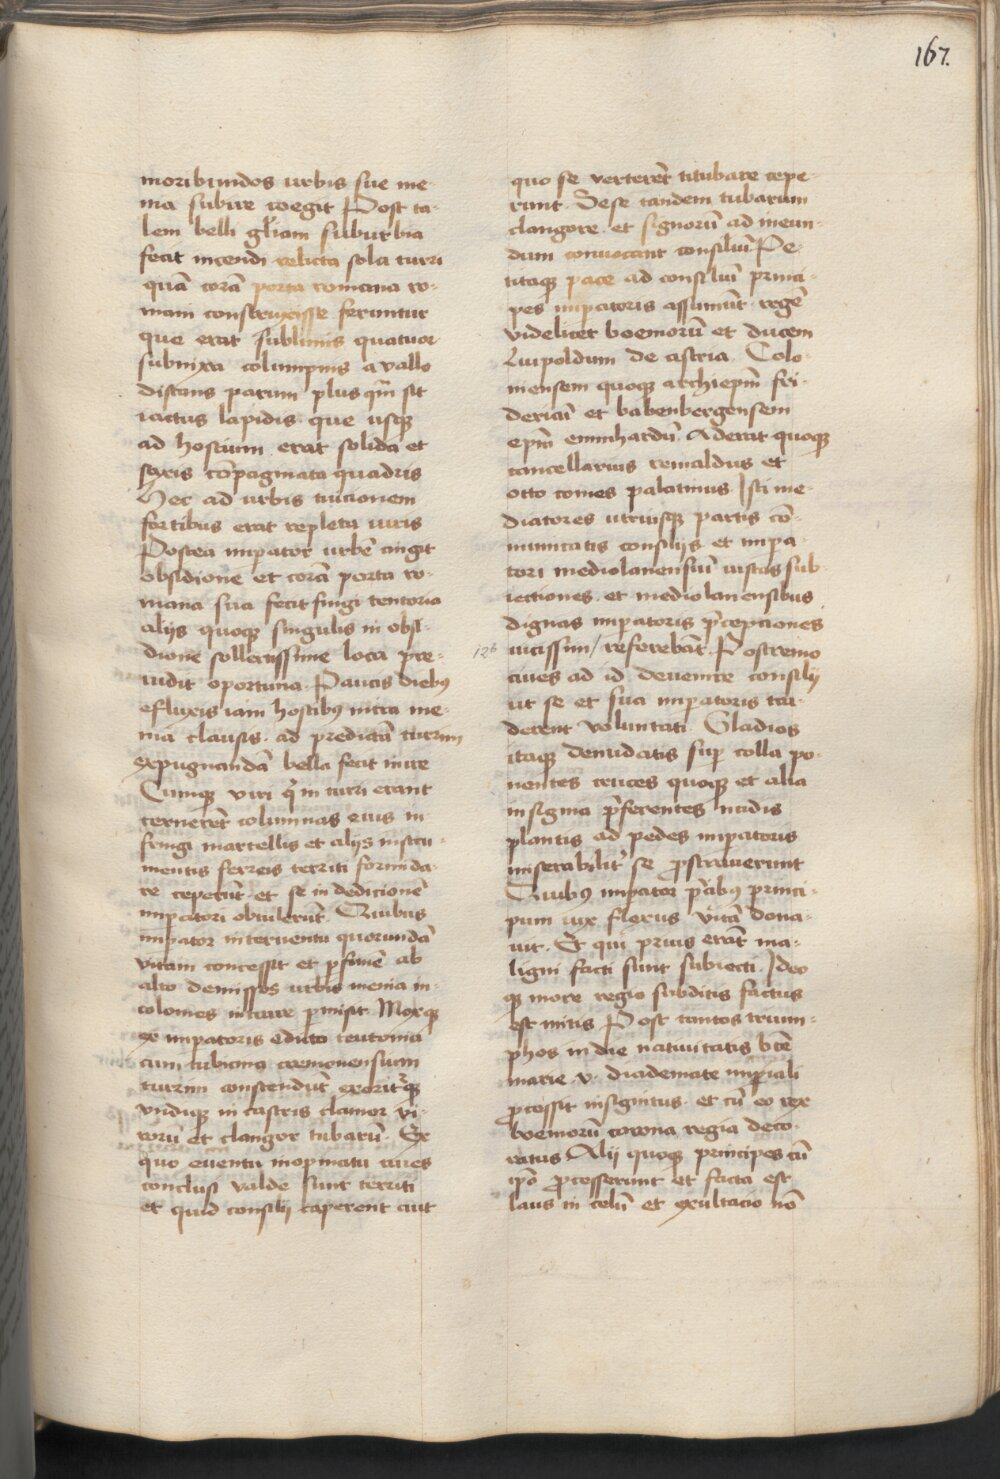 167.
moribundos urbis sue me-
nia subire coegit Post ta-
lem belli gl'iam suburbia
fecit incendi relicta sola turri
quā corā porta romana ro-
mani construxisse feruntur
que erat sublimis quatuor
subnixa columpnis a vallo
distans parum plus qm̄ sit
iactus lapidis que usqꝫ
ad hostium erat solida et
saxis cōpaginata quadris
Hec ad urbis tuicionem
fortibus erat repleta viris
Postea impator urbē cingit
obsidione et corā porta ro-
mana sua fecit fingi tentoria
alijs quoqꝫ singulis in obsi-
dione sollertissime loca pre-
uidit oportuna Paucis diebꝰ
efluxis iam hostibꝰ intra me-
nia clausis ad predictā turrim
expugnandā bella fecit inire
Cumqꝫ viri q̄ in turri erant
cernerēt columnas eius in
fringi martellis et alijs instru-
mentis ferreis territi formida-
re ceperūt et se in dedicionē
impatori obtulerūt Quibus
impator interuentu quorundā
vitam concessit et p funē ab
alto demissos urbis menia in-
colomes intrare pmisit Moxqꝫ
ex impatoris edicto teutonia
cum tubicina cremonensium
turrim conscendūt exoritᷣqꝫ
vndiqꝫ in castris clamor vi-
rorū et clangor tubarū Ex
quo euentu inopinatu ciues
conclusi valde sunt territi
et quid consilij caperent aut
quo se verterēt titubare cepe-
runt Sese tandem tubarum
clangore et signorū ad ineun-
dum conuocant consiliū Pe-
titaqꝫ pace ad consiliū princi-
pes impatoris assumūt regē
videlicet boemorū et ducem
Luipoldum de astria Colo-
niensem quoqꝫ archiepm̄ fri-
dericū et babenbergensem
epm̄ eminhardū Aderat quoqꝫ
cancellarius reinaldus et
otto comes palatinus Isti me-
diatores utriusqꝫ partis cō-
municatis consilijs et impa-
tori mediolanensiū iustas sub-
iectiones et mediolanensibus
dignas impatoris p̄cepciones
126 vicissim/ referebāt Postremo
ciues ad id deuenire consilij
ut se et sua impatoris tra-
derent voluntati Gladios
itaqꝫ denudatis sup colla po-
nentes cruces quoqꝫ et alia
insignia p̄ferentes nudis
plantis ad pedes impatoris
miserabilit' se prostrauerunt
Quibꝰ impator p̄cibꝰ princi-
pum vix flexus vitā dona-
uit Et qui prius erāt ma-
ligni facti sunt subiecti Ideo
qꝫ more regio subditis factus
est mitis Post tantos trium-
phos in die natiuitatis bt̄e
marie v. diademate impiali
processit insignitus et cū eo rex
boemorū corona regia deco-
ratus Alij quoqꝫ principes cū
ipō processerunt et facta est
laus in celū et exultacio nō